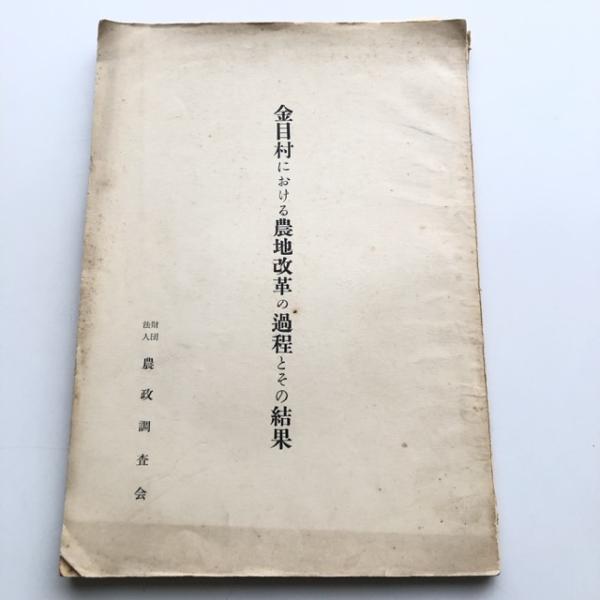 金目村における農地改革の過程とその結果
財団法人 農政調査会